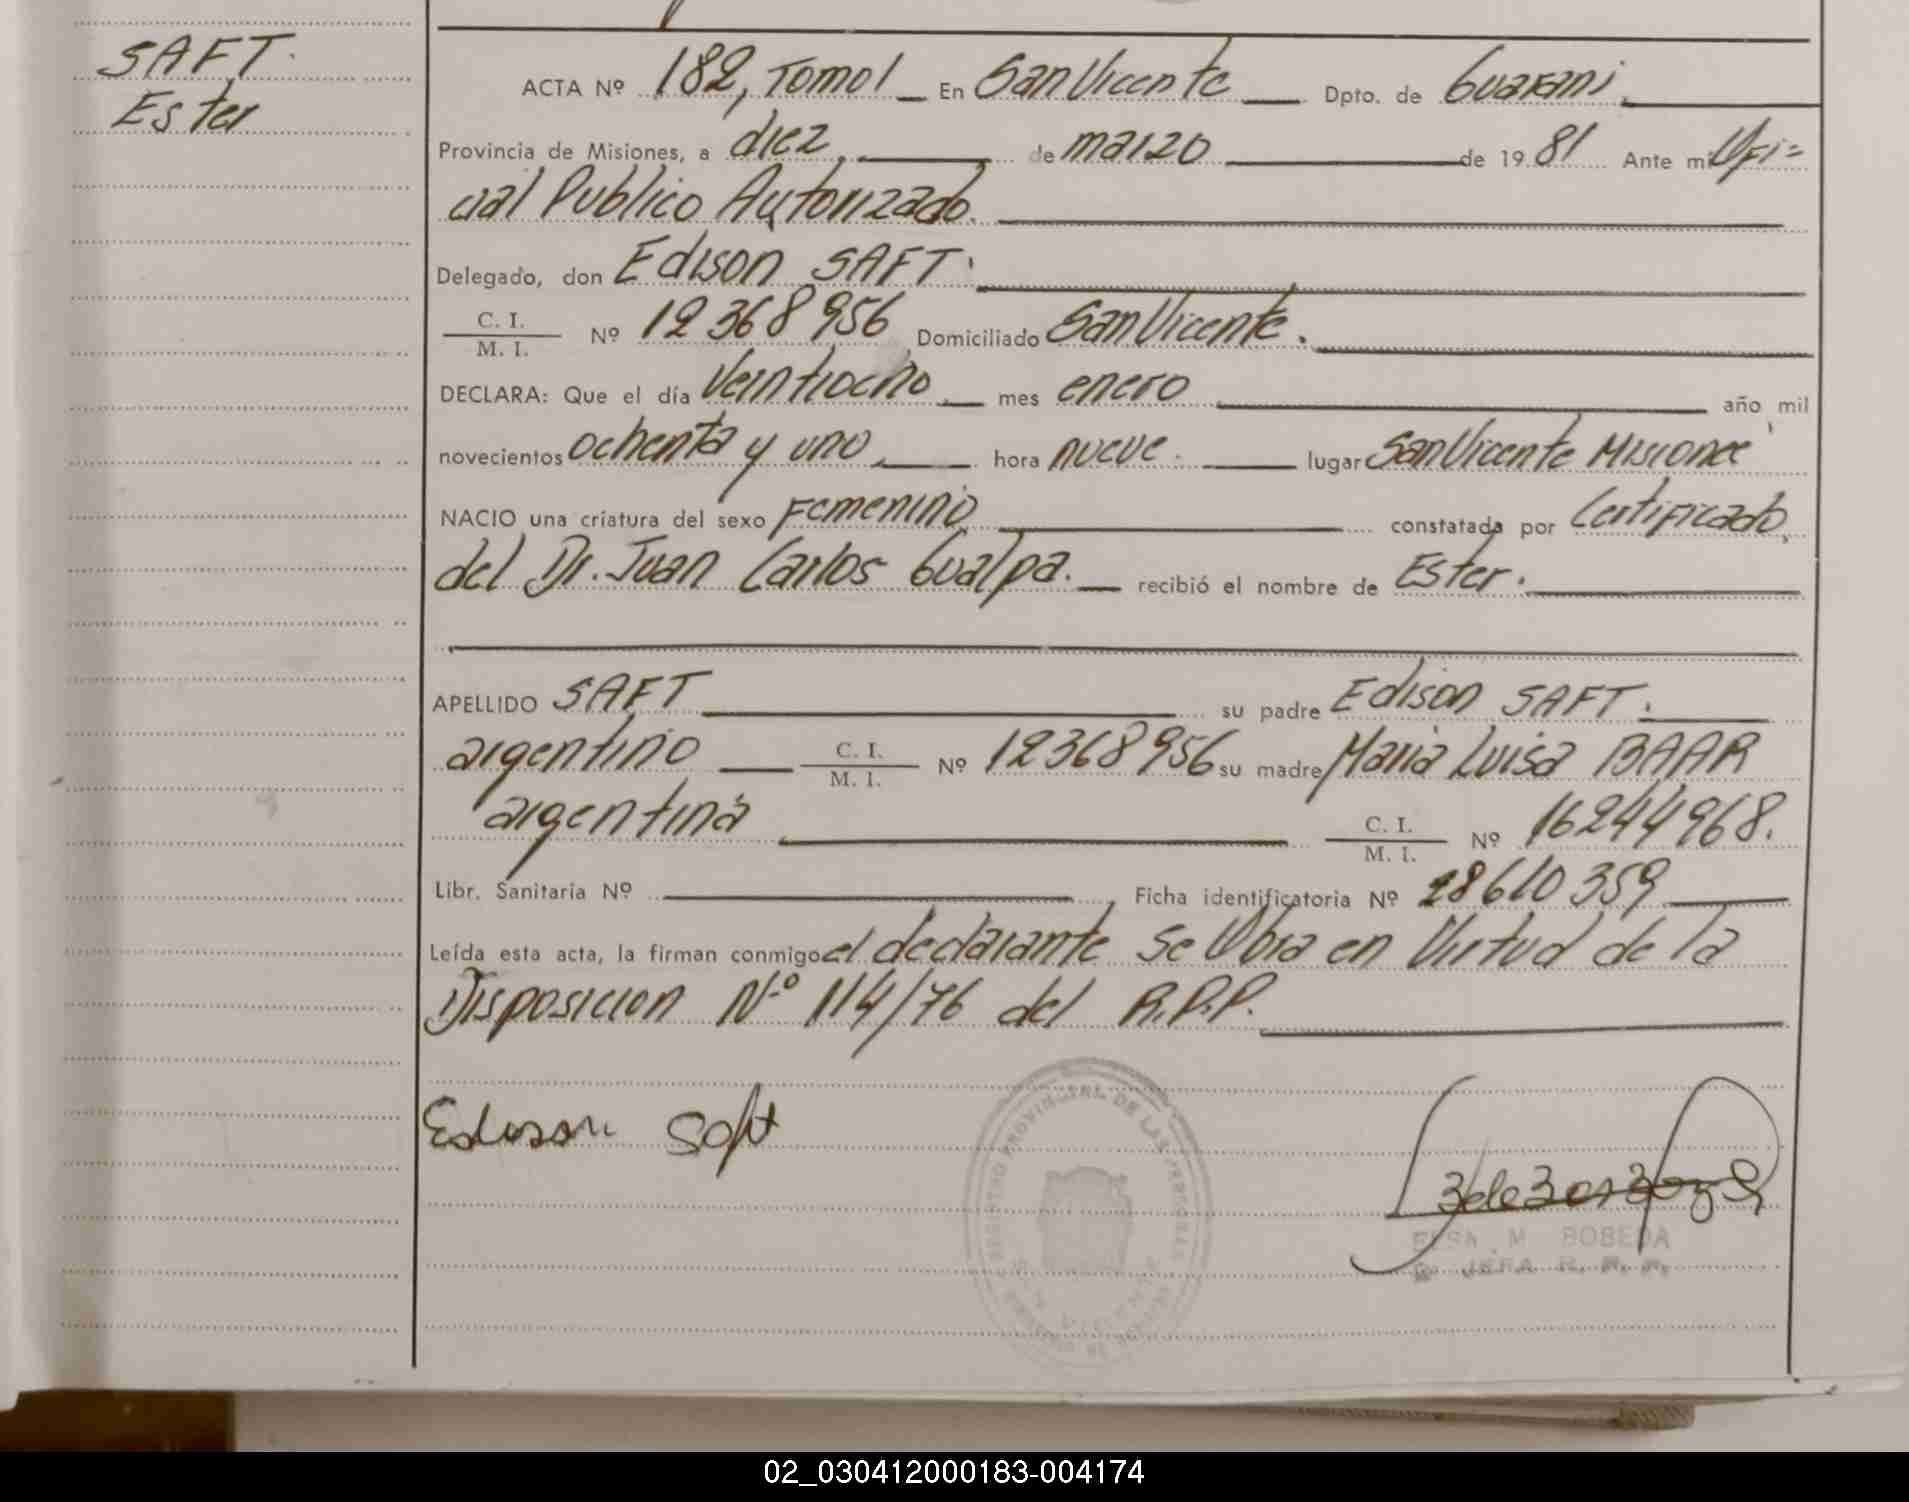 SAFT.
Ester
ACTA Nº 182, Tomo I En San Vicente Dpto. de Guarani
Provincia de Misiones, a diez, de marzo de 1981 Ante mi Ofi=
cial Publico Autorizado.
Delegado, don Edison SAFT.
C. I.
M. I. Nº 12368956 Domiciliado San Vicente.
DECLARA: Que el día Veintiocho mes enero año mil
novecientos ochenta y uno, hora nueve. lugar San Vicente Misiones
NACIO una criatura del sexo Femenino constatada por Certificado,
del Dr. Juan Carlos Gualpa. recibió el nombre de Ester.
APELLIDO SAFT su padre Edison SAFT.
argentino C. I.
M. I. Nº 12368956 su madre Maria Luisa BAAR
argentina C. I.
M. I. Nº 16244968.
Libr. Sanitaria Nº Ficha identificatoria Nº 28610359
Leída esta acta, la firman conmigo el declarante Se Obra en Virtud de la
Disposicion Nº 114/76 del R.P.P.
Edison Saft
REGISTRO PROVINCIAL DE LAS PERSONAS
ELSA M. BOBEDA
JEFA R. P. P.
02_030412000183-004174